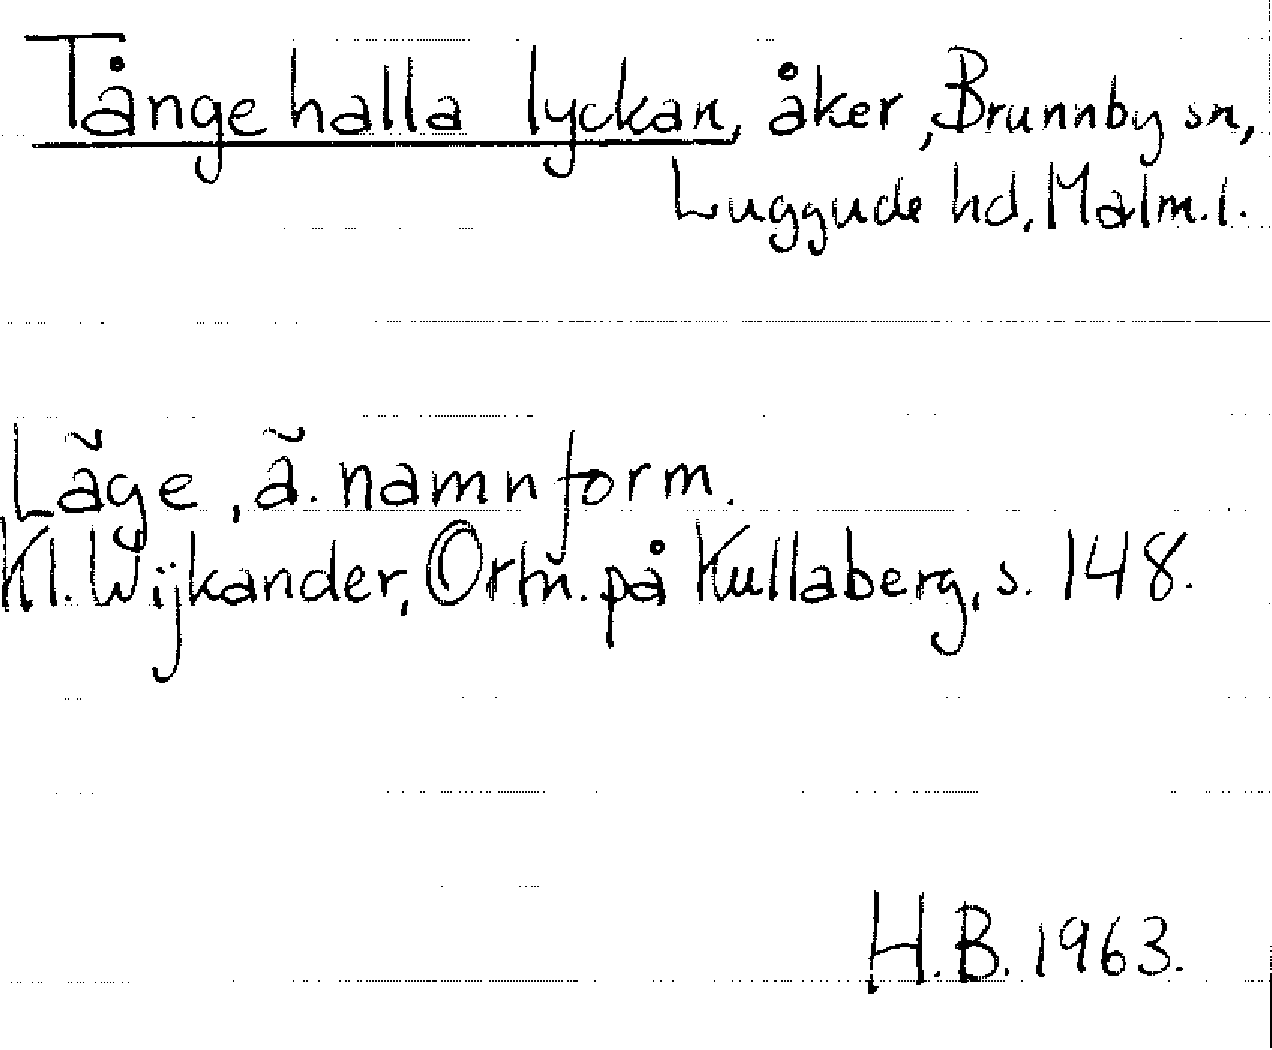 Tångehalla lyckan, åker, Brunnby sn,
Luggude hd, Malm.l.
Läge, ä. namnform.
Kl. Wijkander, Ortn. på Kullaberg, s. 148.
H.B. 1963.